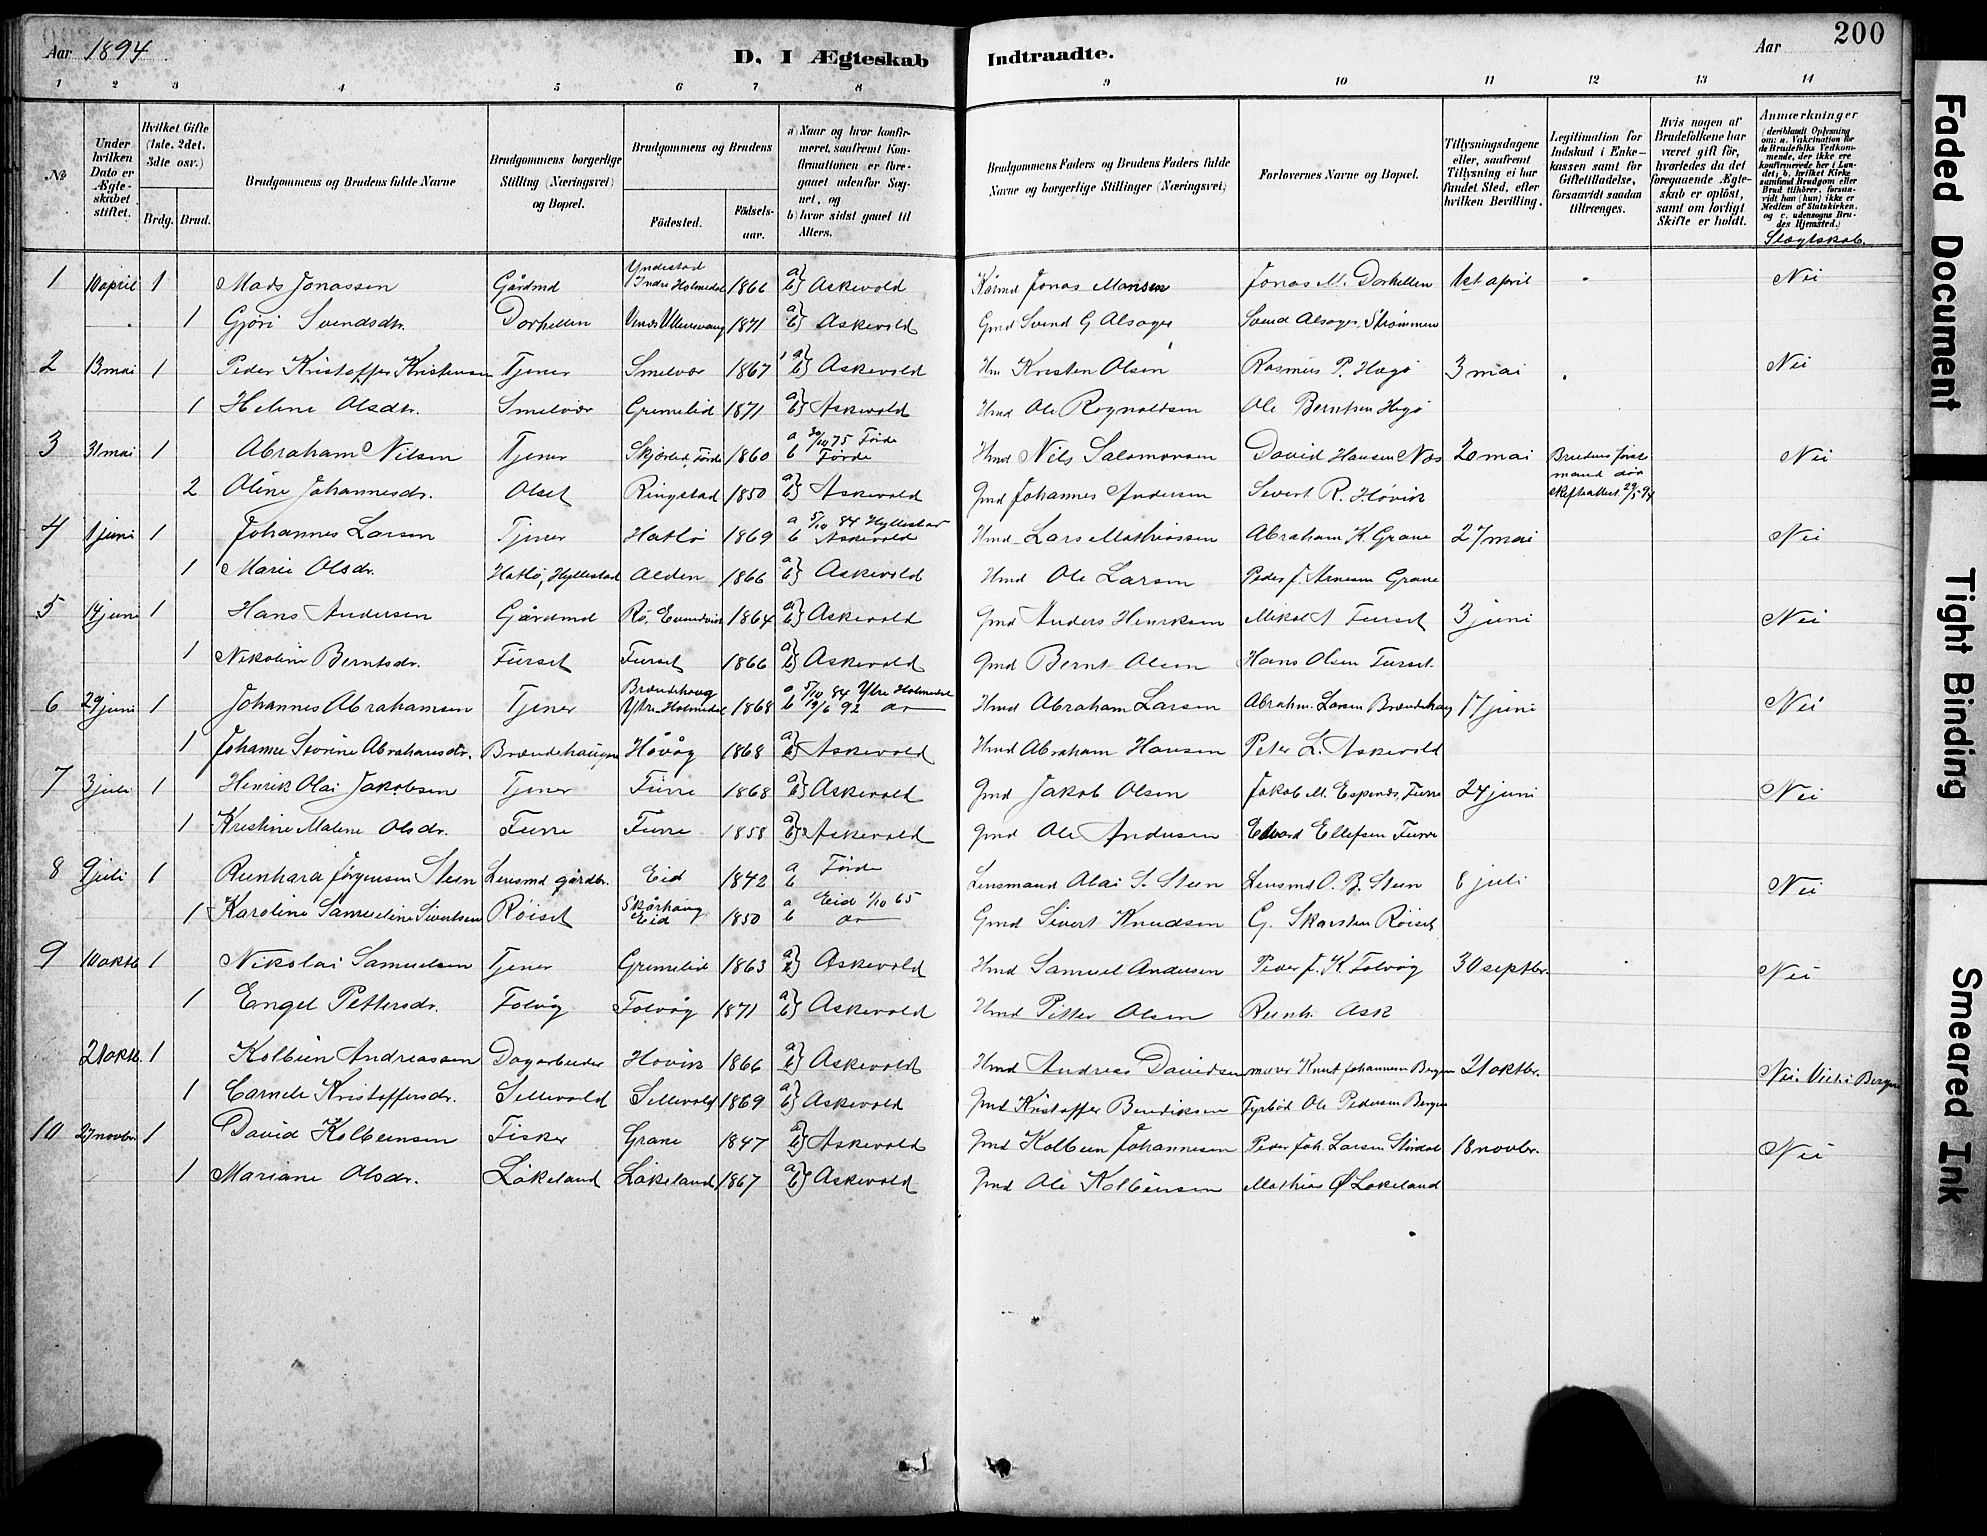 Aar 1894
D. I Ægteskab Indtraadte.
Aar
200
1 2 3 4 5 6 7 8 9 10 11 12 13 14
No
Under hvilken Dato er Ægteskabet stiftet.
Hvilket Gifte (1ste, 2det, 3die osv.)
Brdg. Brud.
Brudgommens og Brudens fulde Navne
Brudgommens borgerlige Stilling (Næringsvei) og Bopæl.
Brudgommens og Brudens
Fødested.
Fødselsaar.
a) Naar og hvor konfirmeret, saafremt Konfirmationen er foregaaet udenfor Sognet, og
b) hvor sidst gaaet til Alters.
Brudgommens Faders og Brudens Faders fulde Navne og borgerlige Stillinger (Næringsvei)
Forlovernes Navne og Bopæl.
Tillysningsdagene eller, saafremt Tillysning ei har fundet Sted, efter hvilken Bevilling.
Legitimation for Indskud i Enkekassen samt for Giftetilladelse, forsaavidt saadan tiltrænges.
Hvis nogen af Brudefolkene har været gift før, hvorledes da det foregaaende Ægteskab er opløst, samt om lovligt Skifte er holdt.
Anmærkninger (deriblandt Oplysning om: a. Vakcination for de Brudefolks Vedkommende, der ikke ere konfirmerede her i Landet; b. hvilket Kirkesamfund Brudgom eller Brud tilhører, forsaavidt han (hun) ikke er Medlem af Statskirken, og c. udensogns Brudes Hjemsted.)
Slægtskab.
1 10 april 1 Mads Jonassen Gårdmd Yndestad Indre Holmedal 1866 a b} Askevold Jonas Monsen Jonas M. Dorhellen 1st april Nei
1 Gjøri Svendsdtr. Dorhellen 1871 a b} Askevold Gmd Svend G Alsager Svend Alsager, Strømmen
2 13 mai 1 Peder Kristoffer Kristensen Tjener Smelvær 1867 a b} Askevold Hm Kristen Olsen Rasmus P. Hegø 3 mai Nei
1 Heline Olsdtr. Smelvær Gremelid 1871 a b} Askevold Hmd Ole Rognaldsen Ole Berntsen Hegø
3 31 mai 1 Abraham Nilsen Tjener Førde 1860 a 30/10 75 Førde b Førde Hmd Nils Salomonsen David Hansen Nos 20 mai Brudens første mand død skifteattest 29/5 94 Nei
2 Oline Johannesdr. Olset Ringstad 1850 a b} Askevold Gmd Johannes Andersen Sivert R. Høvik
4 1 juni 1 Johannes Larsen Tjener Hatlø 1869 a 5/10 84 Hyllestad b Askevold Hmd Lars Mathiassen Abraham K. Grane 27 mai Nei
1 Marie Olsdr. Hatlø, Hyllestad Alden 1866 a b} Askevold Hmd Ole Larsen Peder J. Arnesen Grane
5 14 juni 1 Hans Andersen Gårdmd 1864 a b} Askevold Gmd Anders Henriksen Mikal A Furset 3 juni Nei
1 Nikoline Berntsdr. Furset Furset 1866 a b} Askevold Gmd Bernt Olsen Hans Olsen Furset
6 29 juni 1 Johannes Abrahamsen Tjener Brændehaug Ytre Holmedal 1868 a 5/10 84 Ytre Holmedal b 19/6 92 do Hmd Abraham Larsen Abrah. Larsen Brændehaug 17 juni Nei
1 Johanne Severine Abrahamsdr. Brændehaugen Høvåg 1868 a b} Askevold Hmd Abraham Hansen Peter L. Askevold
7 3 juli 1 Henrik Olai Jakobsen Tjener Furre 1868 a b} Askevold Gmd Jakob Olsen Jakob M. Espenes, Furre 24 juni Nei
1 Kristine Malene Olsdr. Furre Furre 1858 a b} Askevold Gmd Ole Andersen Edvard Ellefsen Furre
8 9 juli 1 Reinhard Jørgensen Steen Lensmd gårdbr. Eid 1842 a b Førde Lensmand Olai S. Steen Lensmd O. B. Steen 8 juli Nei
1 Karoline Samueline Sivertsen Røiset Skårhaug Eid 1850 a Eid 1/10 65 b do Gmd Sivert Knudsen G. Skarsten Røiset
9 10 oktb 1 Nikolai Samuelsen Tjener Gremelid 1863 a b} Askevold Hmd Samuel Andersen Peder J. K. Folvåg 30 septbr. Nei
1 Engel Pettersdr. Folvåg Folvåg 1871 a b} Askevold Hmd Petter Olsen Reinh. Ask
21 oktb. 1 Kolbein Andreassen Dagarbeider Hovik 1866 a b} Askevold Hmd Andreas Davidsen murer Knut Johannesen Bergen 21 oktbr. Nei. Viet i Bergen
1 Camele Kristoffersdr. Sellevold Sellevold 1869 a b} Askevold Gmd Kristoffer Bendiksen Fyrbød Ole Pedersen Bergen
10 27 novbr. 1 David Kolbeinsen Fisker Grane 1847 a b} Askevold Gmd Kolbein Johannesen Peder Joh. Larsen 18 novbr. Nei
1 Mariane Olsdr. Løkeland Løkeland 1867 a b} Askevold Gmd Ole Kolbeinsen Mathias Ø Løkeland
Faded Document
Tight Binding
Smeared Ink